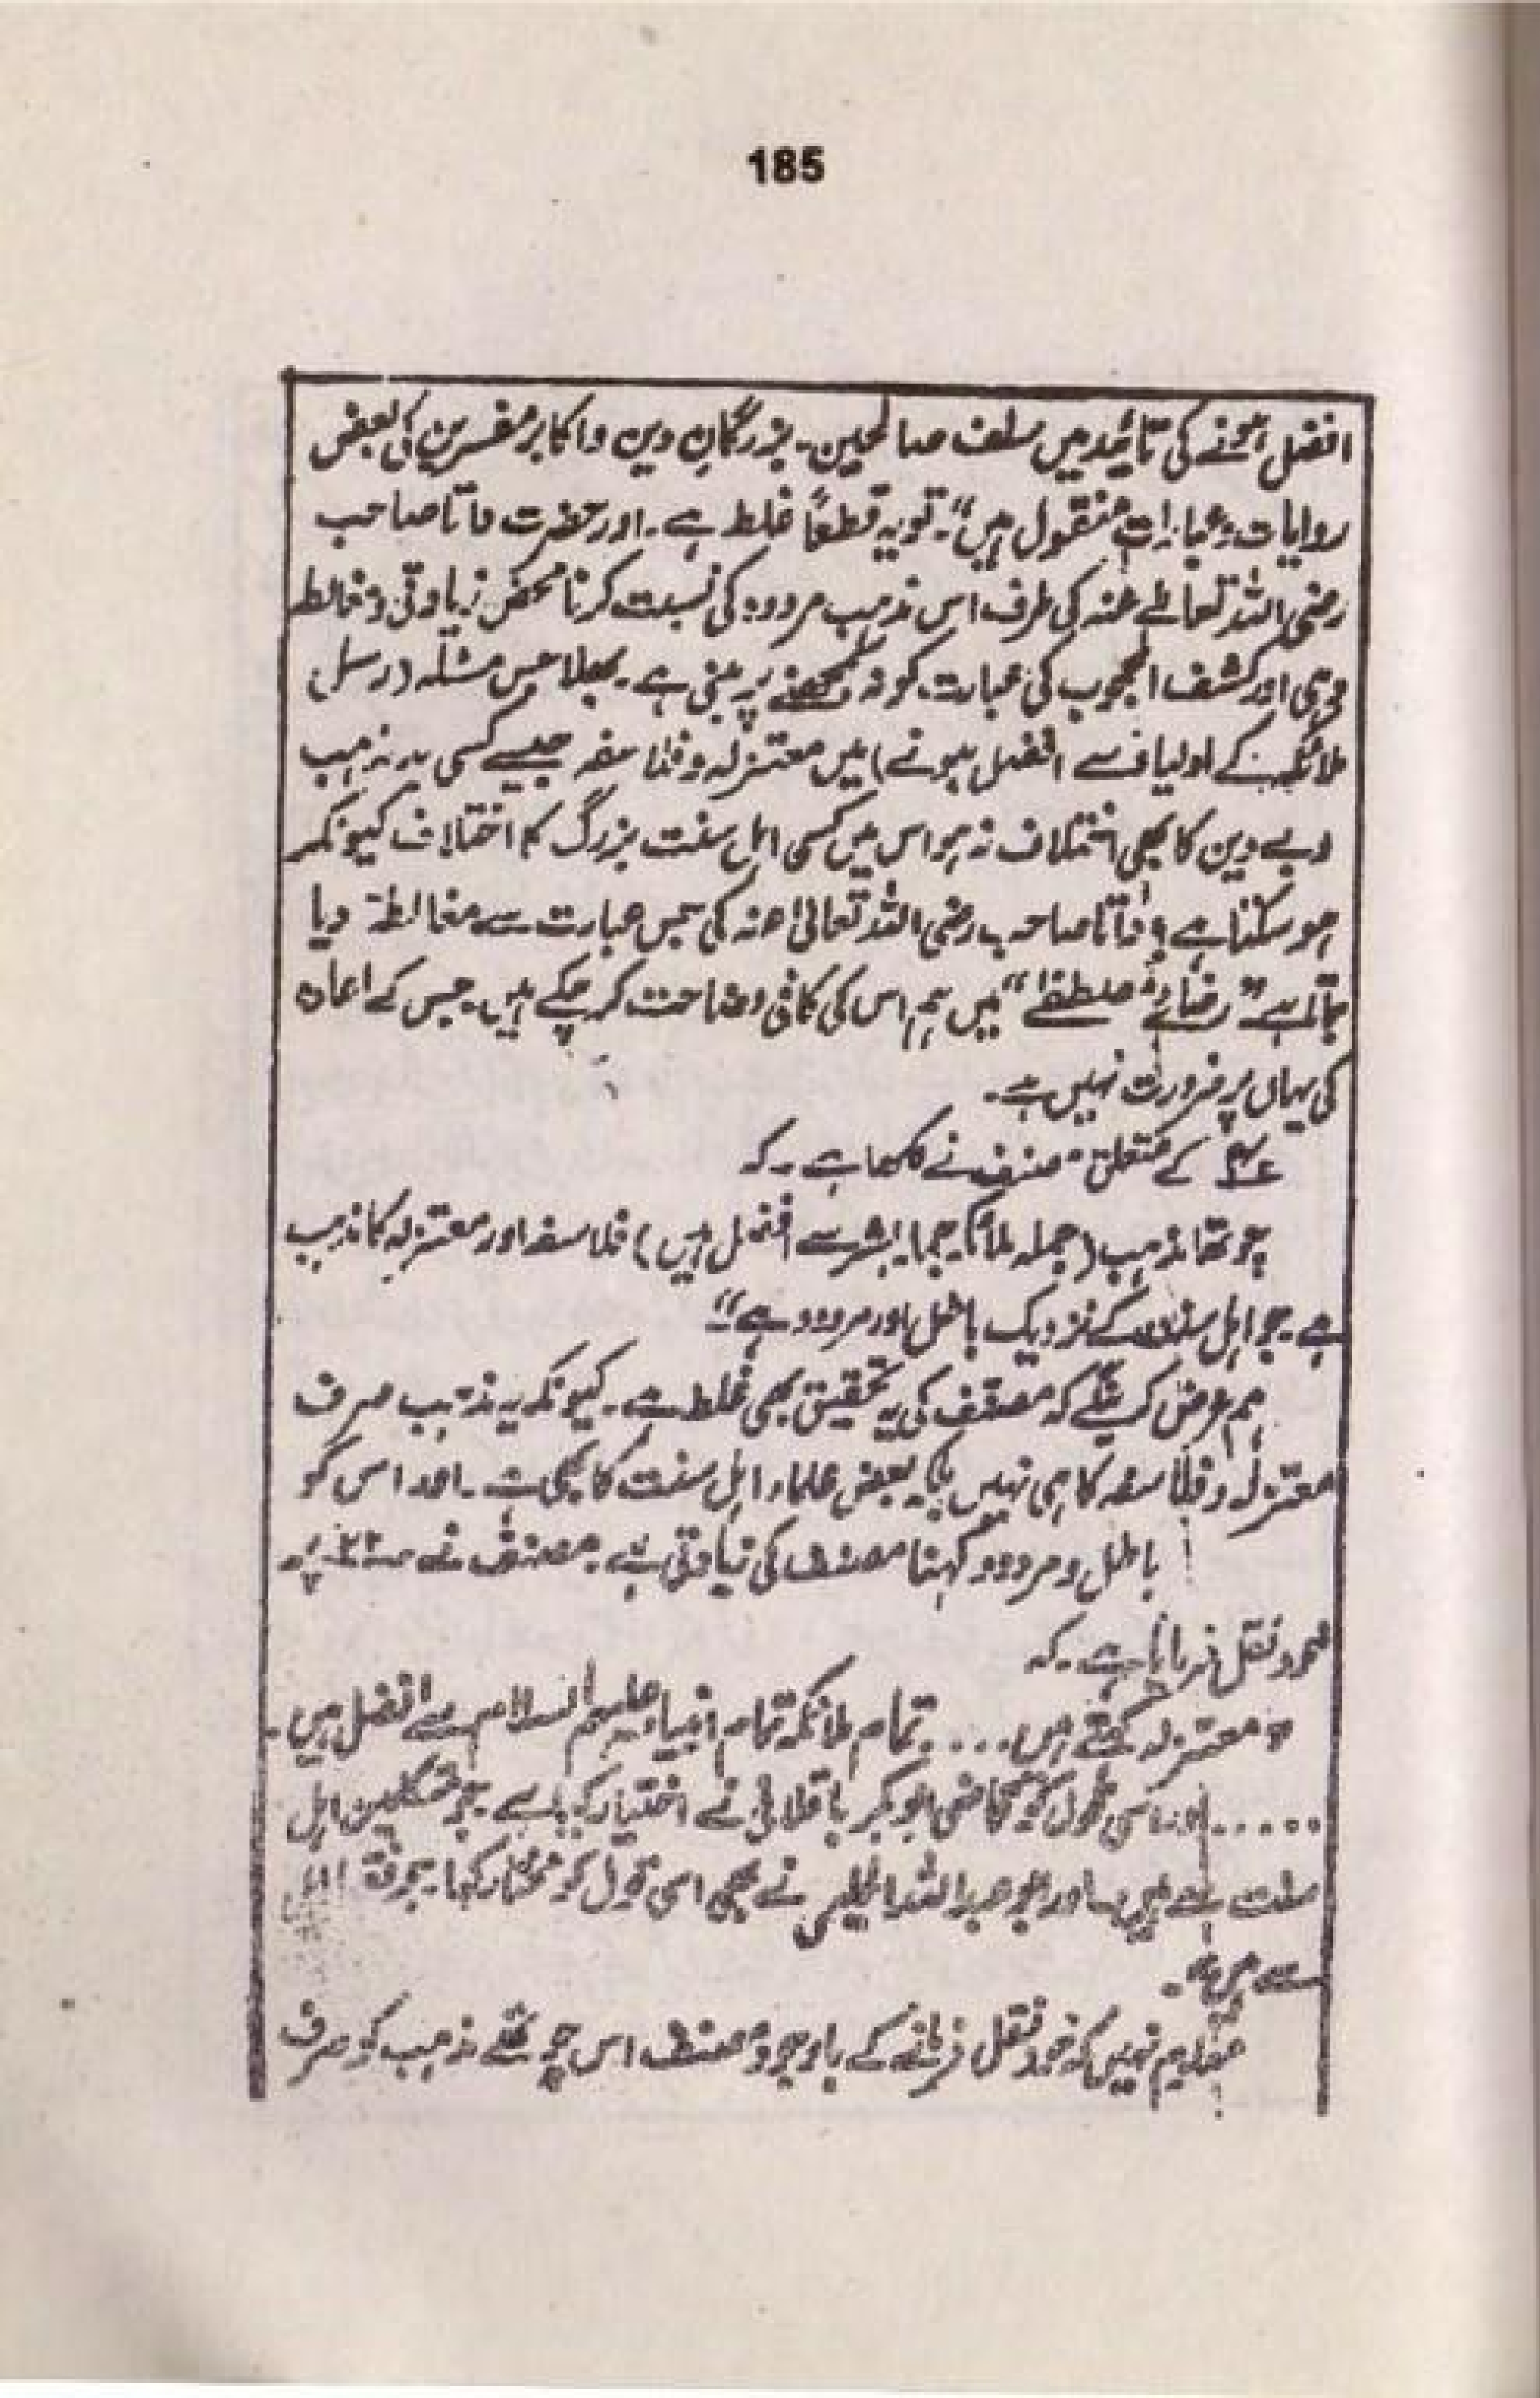 185
افضل ہونے کی تائید میں سلف صالحین۔ بزرگان دین و اکابر مفسرین کی بعض
روایات و عبارات منقول ہیں“۔ تو یہ قطعاً غلط ہے۔ اور حضرت داتا صاحب
رضی اللہ تعالےٰ عنہ کی طرف اس مذہب مردود کی نسبت کرنا محض زیادتی و مغالطہ
دہی اور کشف المحجوب کی عبارت کو نہ سمجھنے پر مبنی ہے۔ بھلا جس مسئلہ (رسل
ملائکہ کے اولیاء سے افضل ہونے) میں معتزلہ و فلاسفہ جیسے کسی بد مذہب
و بے دین کا بھی اختلاف نہ ہو اس میں کسی اہل سنت بزرگ کا اختلاف کیونکر
ہو سکتا ہے؟ داتا صاحب رضی اللہ تعالیٰ عنہ کی جس عبارت سے مغالطہ دیا
جاتا ہے ”رضائے مصطفےٰ“ میں ہم اس کی کافی وضاحت کر چکے ہیں۔ جس کے اعادہ
کی یہاں پر ضرورت نہیں ہے۔
کے متعلق مصنف نے لکھا ہے۔ کہ
چوتھا مذہب (جملہ ملائکہ جملہ بشر سے افضل ہیں) فلاسفہ اور معتزلہ کا مذہب
ہے۔ جو اہل سنت کے نزدیک باطل اور مردود ہے“۔
ہم عرض کریں گے کہ مصنف کی یہ تحقیق بھی غلط ہے۔ کیونکہ یہ مذہب صرف
معتزلہ و فلاسفہ کا ہی نہیں بلکہ بعض علماء اہل سنت کا بھی ہے۔ اور اس کو
باطل و مردود کہنا مصنف کی زیادتی ہے۔ مصنف نے پر
خود نقل فرمایا ہے۔ کہ
”معتزلہ کہتے ہیں..... تمام ملائکہ تمام انبیاء علیہم السلام سے افضل ہیں۔
..... اور اسی قول کو قاضی ابوبکر باقلانی نے اختیار کیا ہے۔ جو متکلمین اہل
سنت سے ہیں۔ اور ابو عبد اللہ الحلیمی نے بھی اسی قول کو مختار کہا۔ جو اہل
سے ہیں“۔
معلوم نہیں کہ خود نقل فرمانے کے باوجود مصنف اس چوتھے مذہب کو صرف